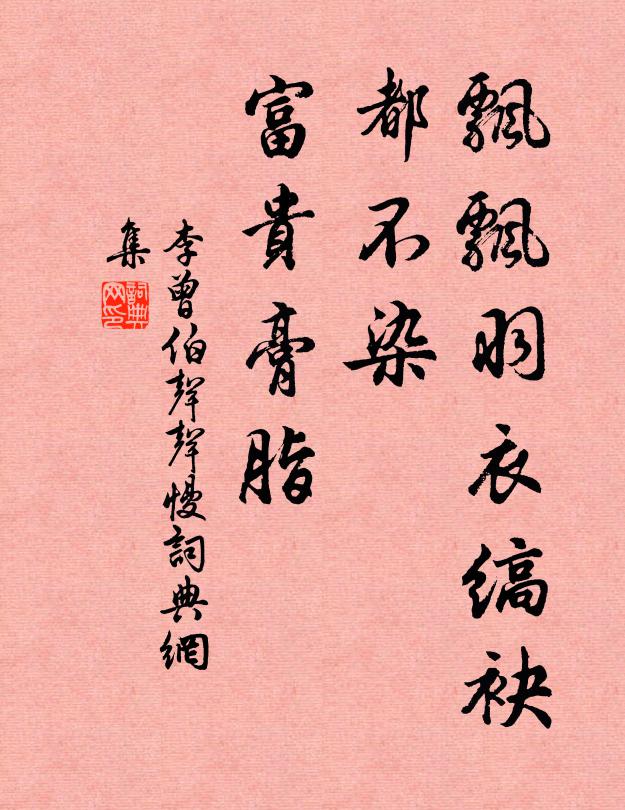 飄飄羽衣縞袂
都不染
富貴膏脂
李曾伯聲聲慢詞典網
集
詞典
网印